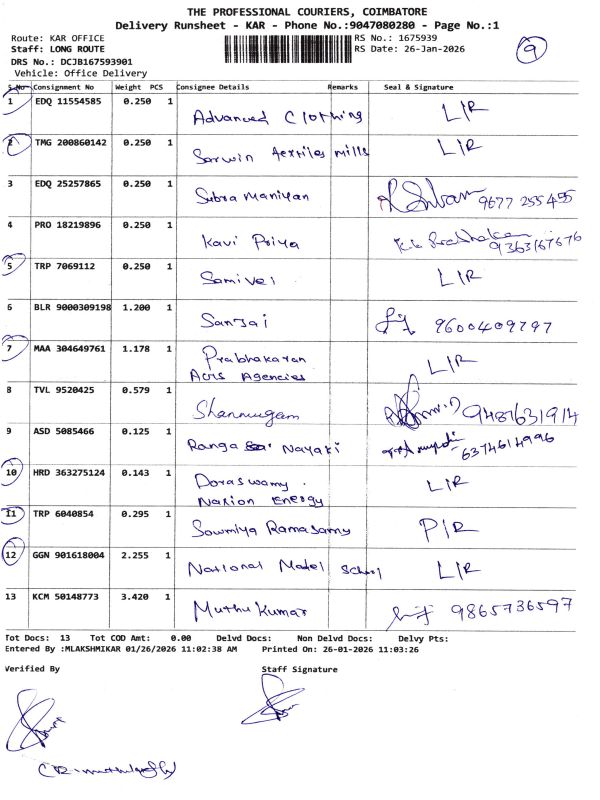 THE PROFESSIONAL COURIERS, COIMBATORE
Delivery Runsheet - KAR - Phone No.:9047080280 - Page No.:1
Route: KAR OFFICE RS No.: 1675939
Staff: LONG ROUTE RS Date: 26-Jan-2026 9
DRS No.: DCJB167593901
Vehicle: Office Delivery
S.No Consignment No Weight PCS Consignee Details Remarks Seal & Signature
1 EDQ 11554585 0.250 1 Advanced Clothing L/R
2 TMG 200860142 0.250 1 Sarwin Textiles mills L/R
3 EDQ 25257865 0.250 1 Subra Maniyan 9677 255455
4 PRO 18219896 0.250 1 Kavi Priya 9363167676
5 TRP 7069112 0.250 1 Samivel L/R
6 BLR 9000309198 1.200 1 Sanjai 9600409797
7 MAA 304649761 1.178 1 Prabhakaran L/R
Agencies
8 TVL 9520425 0.579 1 Shanmugam 9487631914
9 ASD 5085466 0.125 1 Ranga Nayaki 6374614996
10 HRD 363275124 0.143 1 Doraswamy. L/R
Naxion Energy
11 TRP 6040854 0.295 1 Sowmiya Ramasamy P/R
12 GGN 901618004 2.255 1 National Model School L/R
13 KCM 50148773 3.420 1 Muthu Kumar 9865736597
Tot Docs: 13 Tot COD Amt: 0.00 Delvd Docs: Non Delvd Docs: Delvy Pts:
Entered By :MLAKSHMIKAR 01/26/2026 11:02:38 AM Printed On: 26-01-2026 11:03:26
Verified By Staff Signature